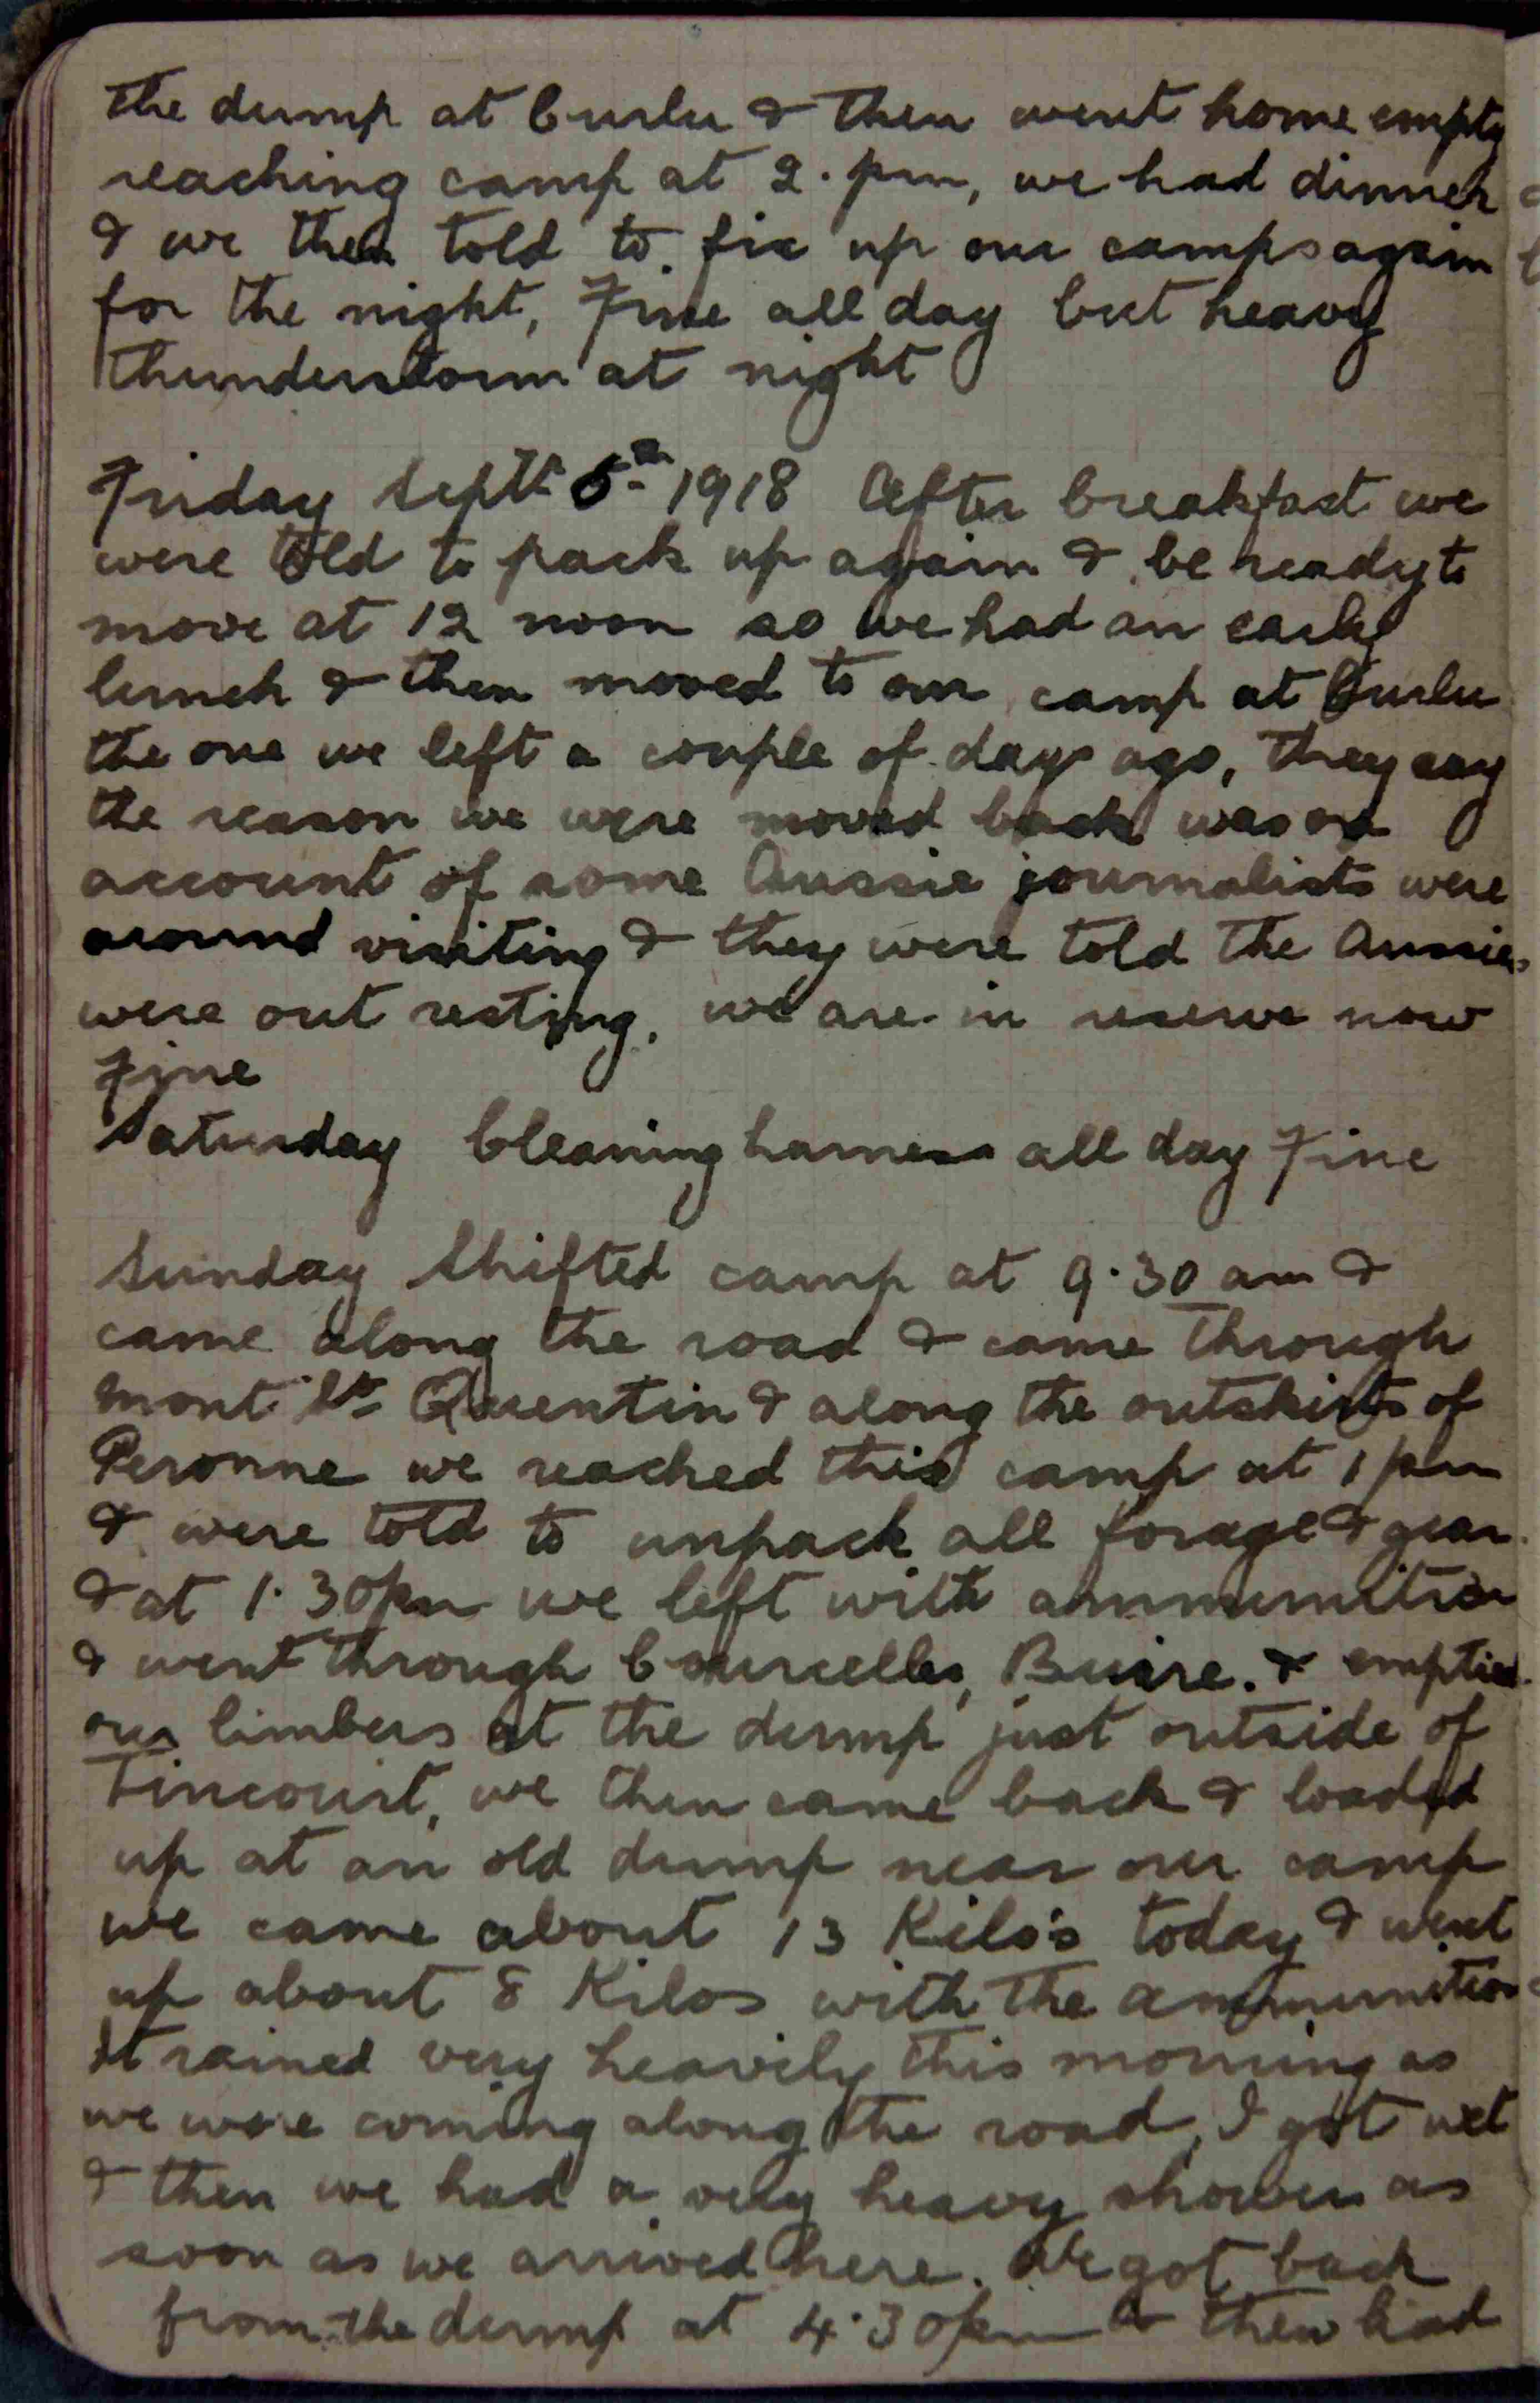 the dump at Curlu & then went home empty
reaching camp at 2. pm, we had dinner
& we then told to fix up our camps again
for the night, Fine all day but heavy
thunderstorm at night
Friday Septr 6th 1918 After breakfast we
were told to pack up again & be ready to
move at 12 noon so we had an early
lunch & then moved to our camp at Curlu
the one we left a couple of days ago, they say
the reason we were moved back was on
account of some Aussie journalists were
around visiting & they were told the Aussies
were out resting, we are in reserve now
Fine
Saturday Cleaning harness all day Fine
Sunday Shifted camp at 9.30 am &
came along the road & came through
Mont St Quentin & along the outskirts of
Peronne we reached this camp at 1 pm
& were told to unpack all forage & gear
& at 1.30pm we left with ammunition
& went through Courcelles, Buire. & emptied
our limbers at the dump just outside of
Tincourt, we then came back & loaded
up at an old dump near our camp
we came about 13 Kilo's today & went
up about 8 Kilos with the ammunition
It rained very heavily this morning as
we were coming along the road, I got wet
& then we had a very heavy shower as
soon as we arrived here. We got back
from the dump at 4.30pm & then had